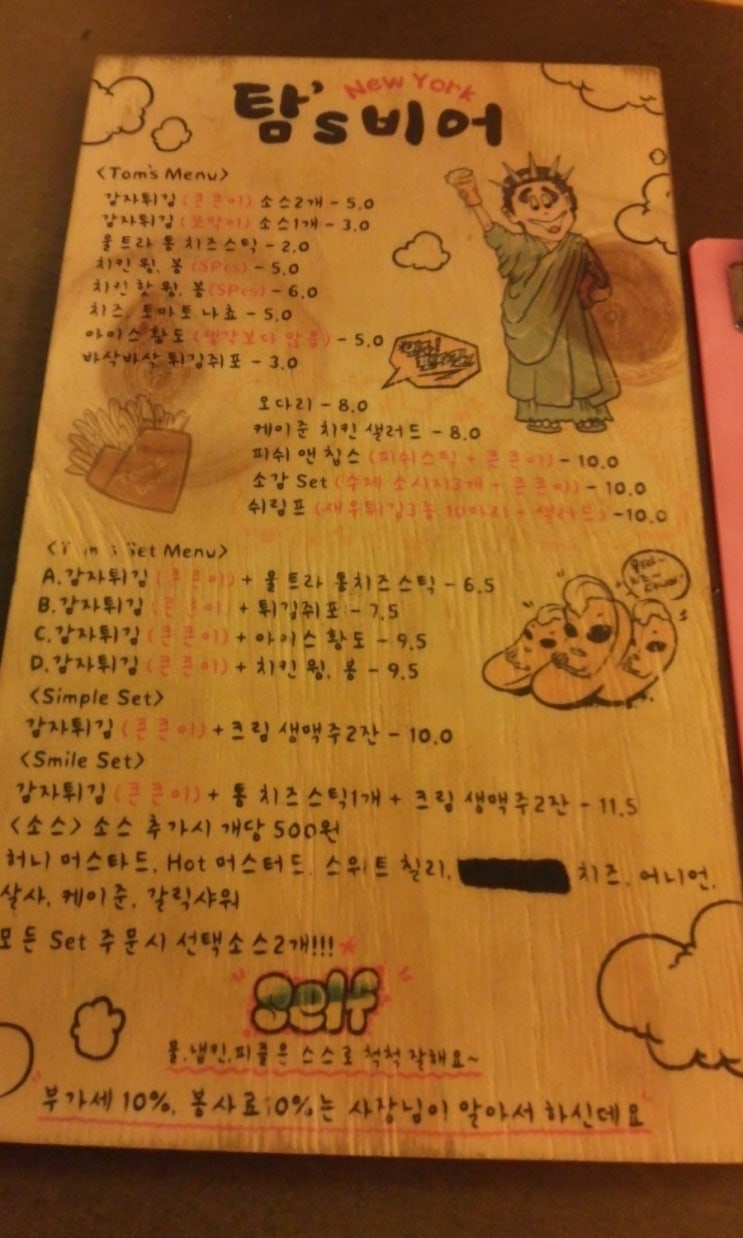 New York
탐's 비어
<Tom's Menu>
감자튀김 (큰큰이) 소스2개 - 5.0
감자튀김 (쪼만이) 소스1개 - 3.0
울트라 통 치즈스틱 - 2.0
치킨 윙, 봉 (5Pcs) - 5.0
치킨 핫 윙, 봉 (5Pcs) - 6.0
치즈, 토마토 나쵸 - 5.0
아이스 황도 (생각보다 많음) - 5.0
바삭바삭 튀김쥐포 - 3.0
오다리 - 8.0
케이준 치킨 샐러드 - 8.0
피쉬 앤 칩스 (피쉬스틱 + 큰큰이) - 10.0
소감 Set (수제 소시지3개 + 큰큰이) - 10.0
쉬림프 (새우튀김3종 10마리 + 샐러드) -10.0
Set Menu>
A.감자튀김 (큰큰이) + 울트라 통치즈스틱 - 6.5
B.감자튀김 (큰큰이) + 튀김쥐포 - 7.5
C.감자튀김 (큰큰이) + 아이스 황도 - 9.5
D.감자튀김 (큰큰이) + 치킨 윙, 봉 - 9.5
<Simple Set>
감자튀김 (큰큰이) + 크림 생맥주2잔 - 10.0
<Smile Set>
감자튀김 (큰큰이) + 통 치즈스틱1개 + 크림 생맥주2잔 - 11.5
<소스> 소스 추가시 개당 500원
허니 머스타드, Hot 머스터드, 스위트 칠리, 치즈, 어니언,
살사, 케이준, 갈릭샤워
모든 Set 주문시 선택소스2개!!!*
"Self"
물,냅킨,피클은 스스로 척척 잘해요~
"부가세 10%, 봉사료 0%는 사장님이 알아서 하신데요"